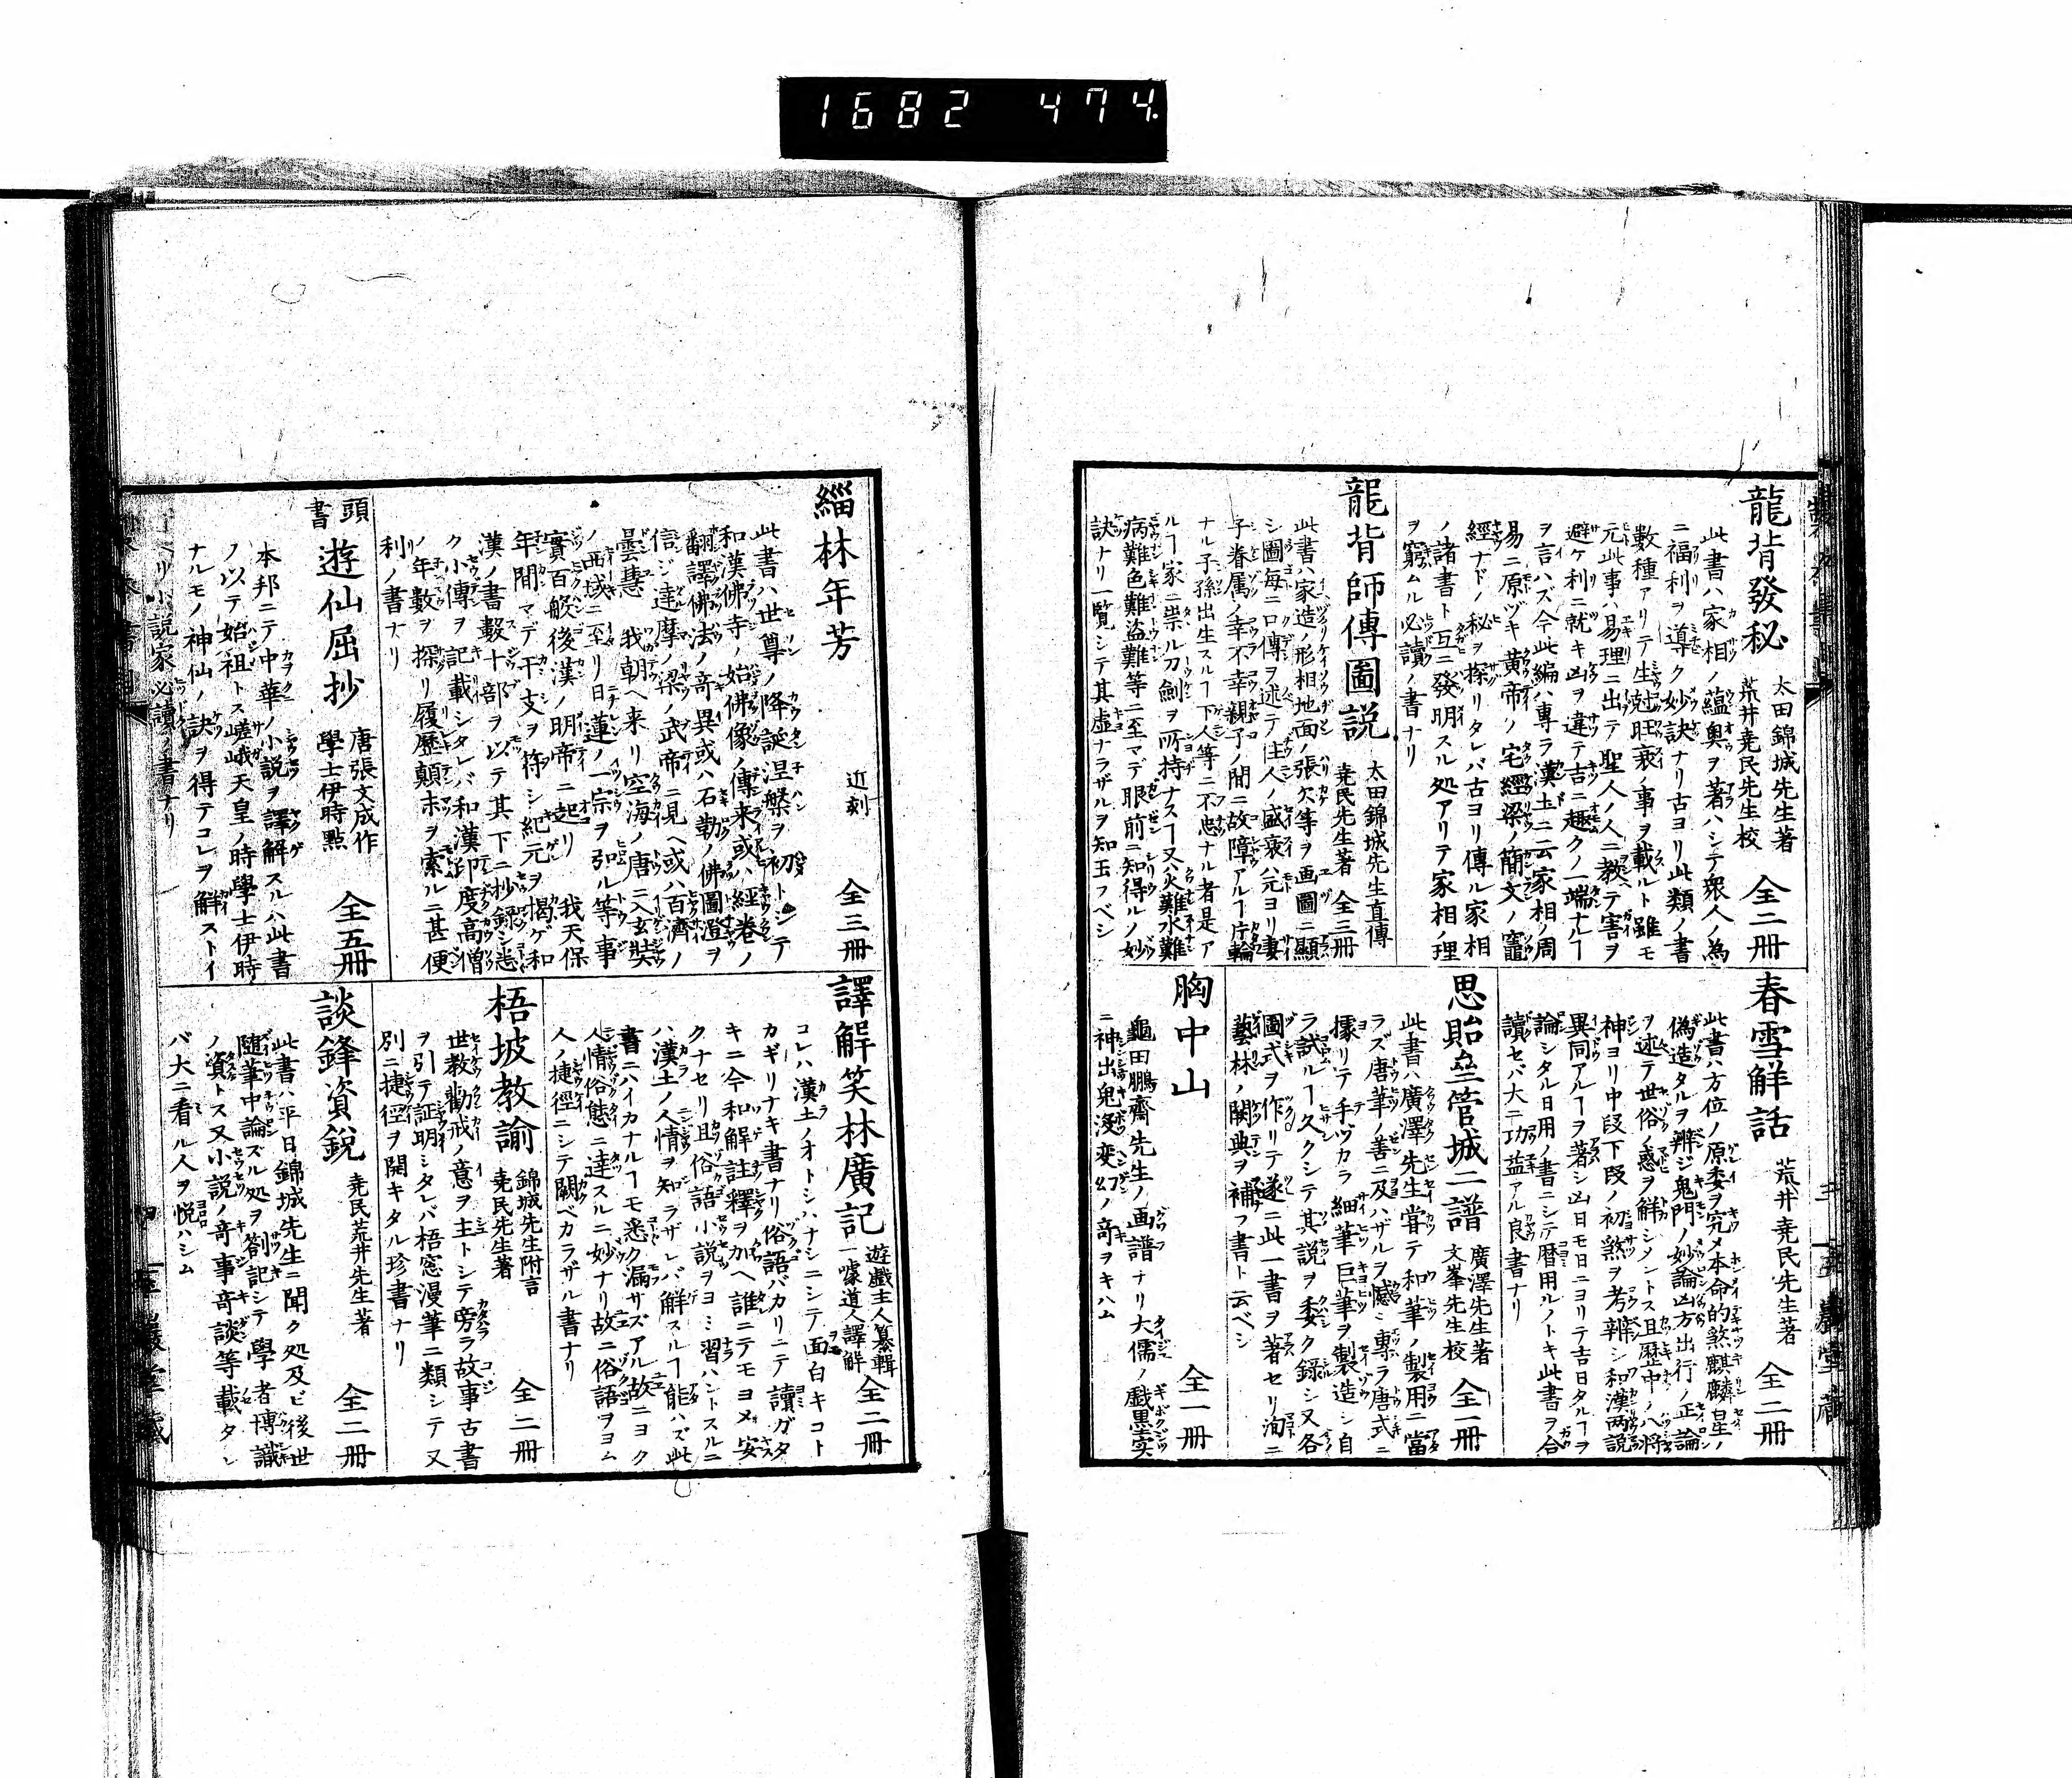 1682 474.
龍背發秘 太田錦城先生著 荒井尭民先生校 全二冊
此書ハ家相ノ蘊奥ヲ著ハシテ衆人ノ為
ニ福利ヲ導ク妙訣ナリ古ヨリ此類ノ書
數種アリテ生尅旺衰ノ事ヲ載ルト雖モ
元此事ハ易理ニ出テ聖人ノ人ニ教テ害ヲ
避ケ利ニ就キ凶ヲ違テ吉ニ趣クノ一端ナルヿ
ヲ言ハズ今此編ハ専ラ漢土ニ云家相ノ周
易ニ原ヅキ黄帝ノ宅經梁ノ簡文ノ竈
經ナドノ秘ヲ探リタレバ古ヨリ傳ル家相
ノ諸書ト互ニ發明スル処アリテ家相ノ理
ヲ窮ムル必讀ノ書ナリ
龍背師傳圖説 太田錦城先生直傳 尭民先生著 全三冊
此書ハ家造ノ形相地面ノ張欠等ヲ画圖ニ顯
シ圖毎ニ口傳ヲ述テ住人ノ盛衰ハ元ヨリ妻
子眷属ノ幸不幸親子ノ間ニ故障アルヿ片輪
ナル子孫出生スルヿ下人等ニ不忠ナル者是ア
ルヿ家ニ祟ル刀劍ヲ所持ナスヿ又火難水難
病難色難盗難等ニ至マデ眼前ニ知得ルノ妙
訣ナリ一覧シテ其虚ナラザルヲ知玉フベシ
春雪解話 荒井尭民先生著 全二冊
此書ハ方位ノ原委ヲ究メ本命的煞麒麟星ノ
偽造タルヲ辨ジ鬼門ノ妙論凶方出行ノ正論
ヲ述テ世俗ノ惑ヲ解シメントス且歴中ノ八將
神ヨリ中段下段ノ初煞ヲ考辨シ和漢両説
異同アルヿヲ著シ凶日モ日ニヨリテ吉日タルヿヲ
論シタル日用ノ書ニシテ暦用ルノトキ此書ヲ合
讀セバ大ニ功益アル良書ナリ
思貽壘管城二譜 廣澤先生著 文峯先生校 全二冊
此書ハ廣澤先生嘗テ和筆ノ製用ニ當
ラズ唐筆ノ善ニ及ハザルヲ憾ミ專ラ唐式ニ
據リテ手ヅカラ細筆巨筆ヲ製造シ自
ラ試ルヿ久クシテ其説ヲ委ク録シ又各
圖式ヲ作リテ遂ニ此一書ヲ著セリ洵ニ
藝林ノ闕典ヲ補フ書ト云ベシ
胸中山 全一冊
龜田鵬齋先生ノ画譜ナリ大儒ノ戯墨実
ニ神出鬼没変幻ノ竒ヲキハム
緇林年芳 近刻 全三冊
此書ハ世尊ノ降誕涅槃ヲ初トシテ
和漢佛寺ノ始佛像ノ傳来或ハ經卷ノ
翻譯佛法ノ竒異或ハ石勒ノ佛圖澄ヲ
信シ達摩ノ梁ノ武帝ニ見ヘ或ハ百濟ノ
曇慧 我朝ヘ来リ空海ノ唐ニ入玄奘
ノ西域ニ至リ日蓮ノ一宗ヲ弘ル等事
實百般後漢ノ明帝ニ起リ 我天保
年間マデ干支ヲ符シ紀元ヲ掲ゲ和
漢ノ書數十部ヲ以テ其下ニ抄録シ悉
ク小傳ヲ記載シタレバ和漢印度高僧
ノ年數ヲ探リ履歴顛末ヲ索ルニ甚便
利ノ書ナリ
頭書 遊仙屈抄 唐張文成作 學士伊時點 全五冊
本邦ニテ中華ノ小説ヲ譯解スルハ此書
ノ以テ始祖トス嵯峨天皇ノ時學士伊時
ナルモノ神仙ノ訣ヲ得テコレヲ解ストイ
ヘリ小説家必讀ノ書ナリ
譯解笑林廣記 遊戯主人纂輯 一噱道人譯解 全二冊
コレハ漢土ノオトシハナシニシテ面白キコト
カギリナキ書ナリ俗語バカリニテ讀ガタ
キニ今和解註釋ヲ加ヘ誰ニテモヨメ安
クナセリ且俗語小説ヲヨミ習ハントスルニ
ハ漢土ノ人情ヲ知ラザレバ解スルヿ能ハズ此
書ニハイカナルヿモ悉ク漏サズアル故ニヨク
人情俗態ニ達スルニ妙ナリ故ニ俗語ヲヨム
人ノ捷徑ニシテ闕ベカラザル書ナリ
梧坡教諭 錦城先生附言 尭民先生著 全二冊
世教勸戒ノ意ヲ主トシテ旁ラ故事古書
ヲ引テ証明シタレバ梧窓漫筆ニ類シテ又
別ニ捷徑ヲ開キタル珍書ナリ
談鋒資鋭 尭民荒井先生著 全二冊
此書ハ平日錦城先生ニ聞ク処及ビ後世
隨筆中論ズル処ヲ劄記シテ學者博識
ノ資トス又小説ノ竒事竒談等載タレ
バ大ニ看ル人ヲ悦ハシム